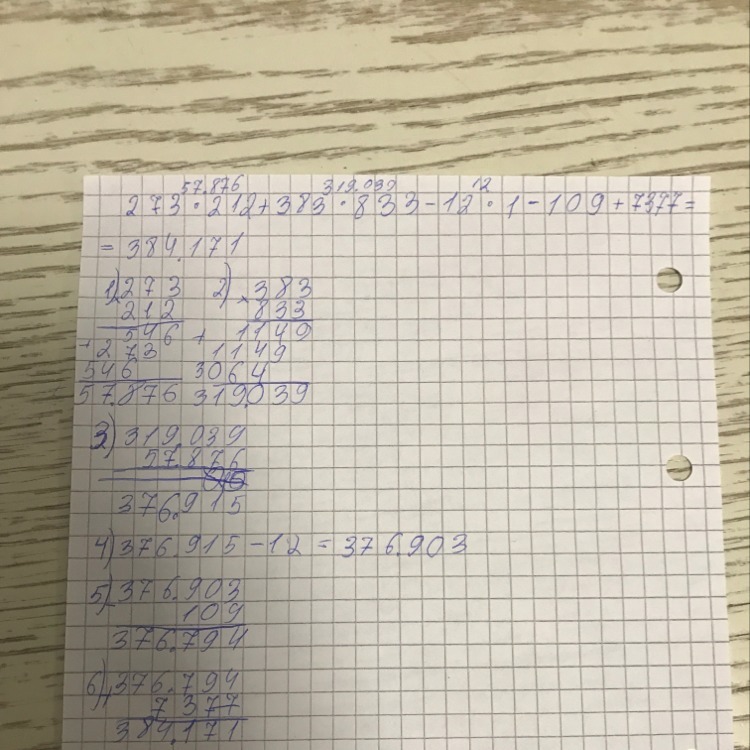 57.876 319.039 12
273 · 212 + 383 · 833 - 12 · 1 - 109 + 7377 =
= 384.171
1) 273 2) × 383
212 833
546 + 1149
+ 273 1149
546 3064
57.876 319.039
3) 319.039
57.876
376.915
4) 376.915 - 12 = 376.903
5) - 376.903
109
376.794
6) + 376.794
7377
384.171